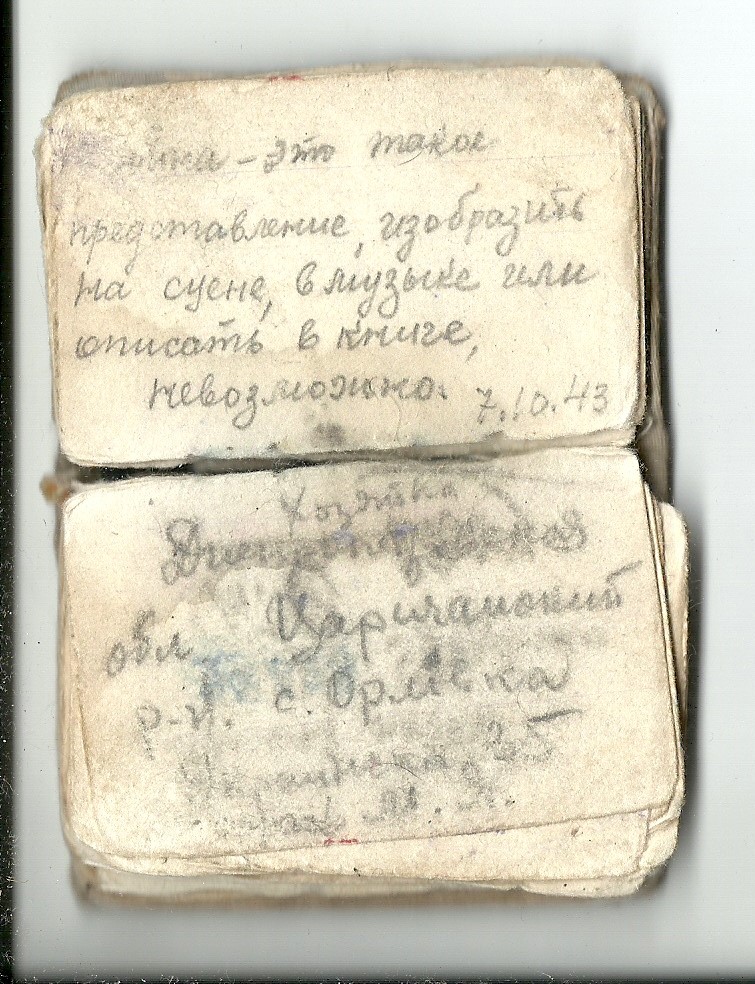 – это такое
представление, изобразить
на сцене, в музыке или
описать в книге,
невозможно. 7.10.43
Хозяйка
обл Царичанский
р-н. с. Орлевка